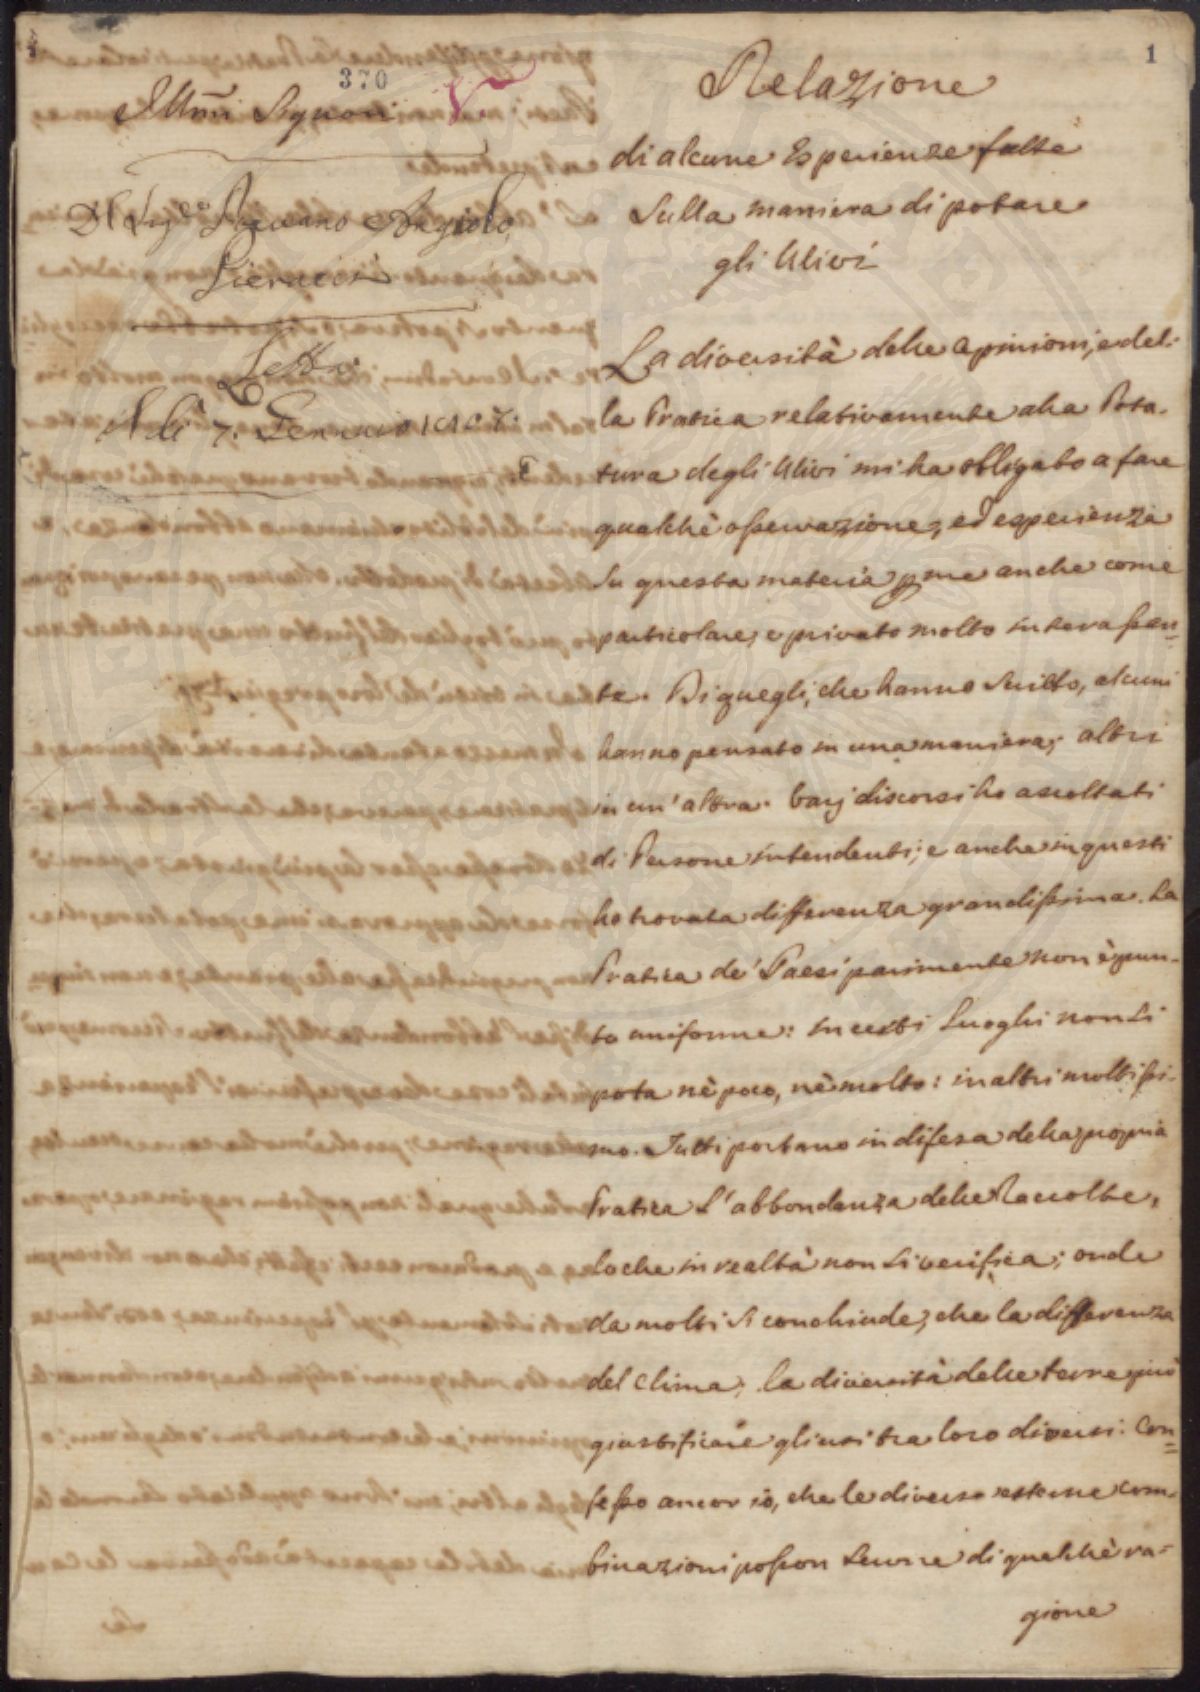 370
1
Illmi Signori
Del Sig.re Piovano Angiolo
Pieracci
Letta
A di 7. Gennaio
Relazione
di alcune Esperienze fatte
Sulla maniera di potare
gli Ulivi
La diversità delle Opinioni, e del-
la Pratica relativamente alla Pota-
tura degli Ulivi mi ha obbligato a fare
qualchè osservazione, ed esperienza
Su questa materia p me anche come
particolare, e privato molto interessan=
te. Di quegli, che hanno Scritto, alcuni
hanno pensato in una maniera; altri
in un' altra. Varj discorsi ho ascoltati
di Persone intendenti; e anche in questi
ho trovata differenza grandissima. La
Pratica de' Paesi parimente non è pun-
to uniforme: in certi Luoghi non Si
pota nè poco, nè molto: in altri moltissi-
mo. Tutti portano in difesa della propria
Pratica L'abbondanza delle Raccolte,
Lo che in realtà non Si verifica; onde
da molti Si conchiude, che la differenza
del Clima, la diversità delle terre può
giustificare gli usi tra loro diversi. Con=
fesso ancor io, che le diverse esterne com-
binazioni posson Servire di qualchè ra=
gione